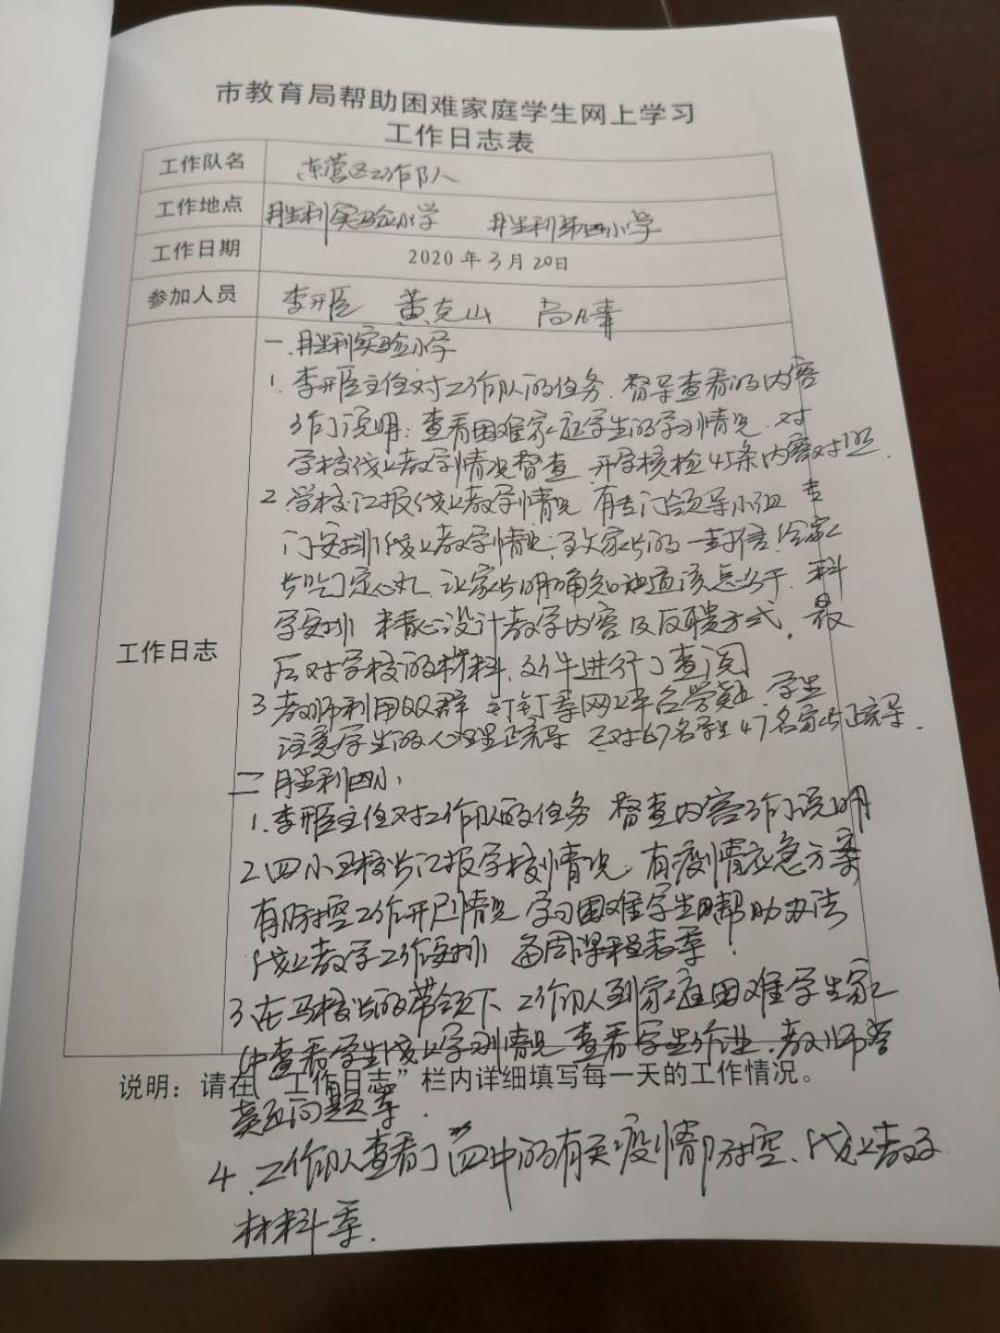 市教育局帮助困难家庭学生网上学习
工作日志表
工作队名 东营区工作队
工作地点 胜利实验小学 胜利第四小学
工作日期 2020年3月20日
参加人员 李开臣 黄克山
一.胜利实验小学
1.李开臣主任对工作队的任务.督导查看的内容
作了说明:查看困难家庭学生的学习情况.对
学校线上教学情况督查.开学核检45条内容对照.
2.学校汇报线上教学情况 有专门领导小组 专
门安排线上教学情况;致家长的一封信.给家
长吃了定心丸.让家长明确知道该怎么干.科
学安排 精心设计教学内容及反馈方式.最
后对学校的材料.文件进行了查阅
3 教师利用QQ群 钉钉等网上平台 学生
注意学生的心理疏导 对67名学生47名家长疏导.
工作日志
二 胜利四小:
1.李开臣主任对工作队的任务 督查内容作了说明
2.四小 校长汇报学校情况.有疫情应急方案
有防控工作开展情况 学习困难学生的帮助办法
线上教学工作安排 每周课程表等!
3.在马校长的带领下 工作队到家庭困难学生家
中查看学生线上学习情况 查看学生作业.教师答
说明:请在“工作日志”栏内详细填写每一天的工作情况。
疑问题等.
4.工作队查看了四中的有关疫情防控、线上教学
材料等.